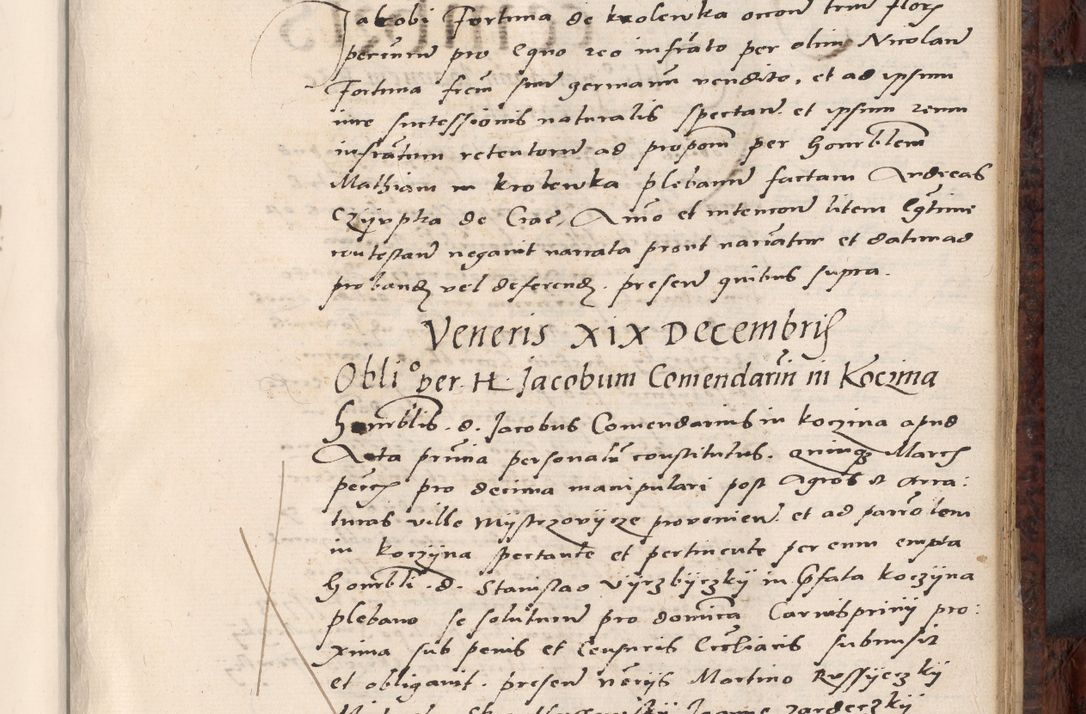 Jacobi Fortuna de krolewka occoñ trium flor
pecuniar pro Equo reo infrato per olim Nicolaũ
Fortuna frem suũ germanũ vendito, et ad ipsum
iure successionis naturalis spectan̄ et ipsum reum
infratum retentorem ad propom̄ per honorblem
Mathiam in krolewka plebanũ factam Andreas
de Crac, Animo et intencoñ litem
contestan̄ negavit narrata prout narrantur et datum ad
proband vel deferend. presen̄ quibus supra.
Veneris XIX Decembris
Oblio per H. Jacobum Comendariũ in Koczina
Honorblis. d. Jacobus Comendarius in koczina apud
Acta pn̄tia personalr̄ constitutus. quinq March
pecr pro decima manipulari post Agros et Arra:
turas ville Mystrzovycze provenien̄. et ad parrolem
in koczyna spectante et pertinente per eum empta
honorbli. d. Stanislao Vyrzbyczky in Pfata koczyna
plebano se soluturũ pro domica Carnisprivii pro:
xima sub penis et Censuris Eccliaris submisit
et obligavit. presen̄ neriis Martino Russyeczky